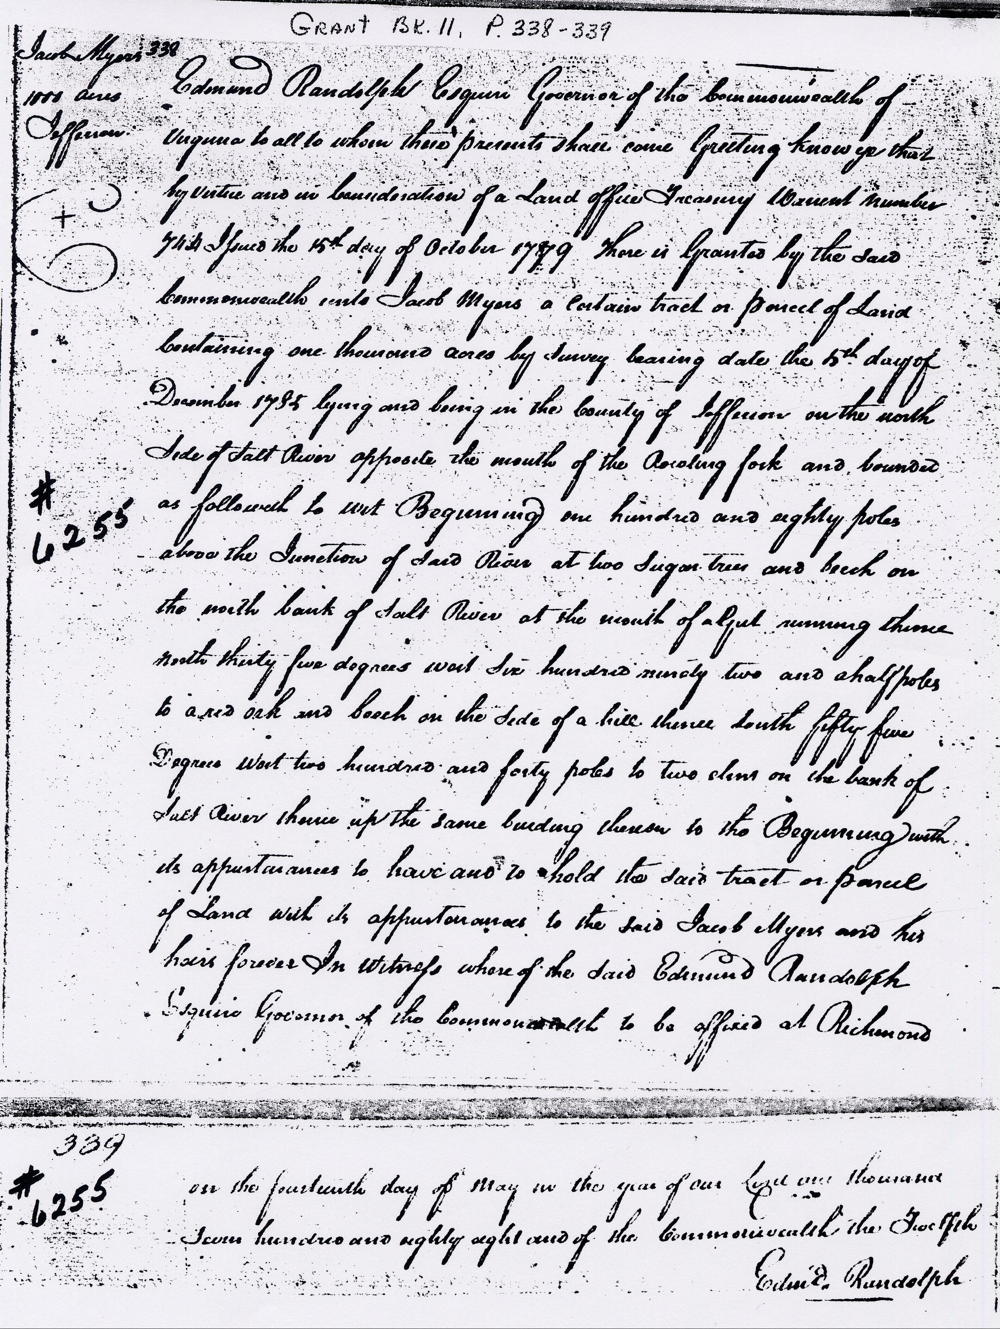 GRANT BK. 11, P. 338-339
Jacob Myers 338
1000 acres
Jefferson
Edmund Randolph Esquire Governor of the Commonwealth of
Virginia to all to whom these presents shall come Greeting know ye that
by virtue and in Consideration of a Land office Treasury Warrent Number
Issued the 15th day of October 1779 There is Granted by the said
Commonwealth unto Jacob Myers a certain tract or parcel of Land
Containing one thousand acres by Survey bearing date the 15th day of
December 1785 lying and being in the County of Jefferson on the north
Side of Salt River opposite the mouth of the Rowling fork and bounded
as followeth to wit Beginning one hundred and eighty poles
above the Junction of Said River at two Sugar trees and beech on
the north bank of Salt River at the mouth of a Gut running thence
north thirty five degrees west Six hundred ninety two and a half poles
to a red oak and beech on the side of a hill thence South fifty five
Degrees West two hundred and forty poles to two elms on the bank of
Salt River thence up the same binding thereon to the Beginning with
its appurtanances to have and to hold the said tract or parcel
of Land with its appurtanances to the said Jacob Myers and his
heirs forever In Witness where of the said Edmund Randolph
Esquire Governor of the Commonwealth to be affixed at Richmond
#
6255
339
#
6255
on the fourteenth day of May in the year of our Lord one thousand
Seven hundred and eighty eight and of the Commonwealth the Twelfth
Edmd. Randolph